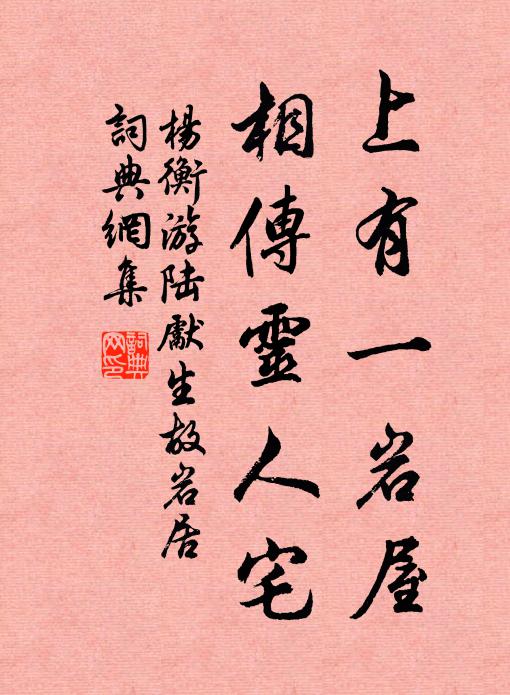 上有一岩屋
相傳靈人宅
楊衡游陸獻生故岩居
詞典網集
詞典網印